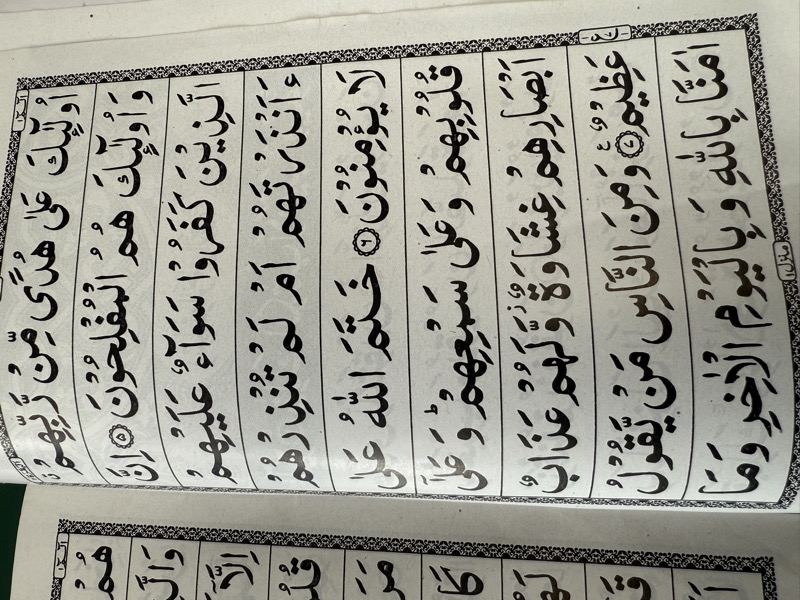 الٓمّٓ ١
اُولٰٓئِكَ عَلٰى هُدًى مِّنْ رَّبِّهِمْ ۙ
وَ اُولٰٓئِكَ هُمُ الْمُفْلِحُوْنَ ۝٥ اِنَّ
الَّذِيْنَ كَفَرُوْا سَوَآءٌ عَلَيْهِمْ
ءَاَنْذَرْتَهُمْ اَمْ لَمْ تُنْذِرْهُمْ
لَا يُؤْمِنُوْنَ ۝٦ خَتَمَ اللّٰهُ عَلٰى
قُلُوْبِهِمْ وَ عَلٰى سَمْعِهِمْ ؕ وَ عَلٰۤى
اَبْصَارِهِمْ غِشَاوَةٌ ؗ وَّ لَهُمْ عَذَابٌ
عَظِيْمٌ ۝٧ وَ مِنَ النَّاسِ مَنْ يَّقُوْلُ
اٰمَنَّا بِاللّٰهِ وَ بِالْيَوْمِ الْاٰخِرِ وَمَا
منزل ١